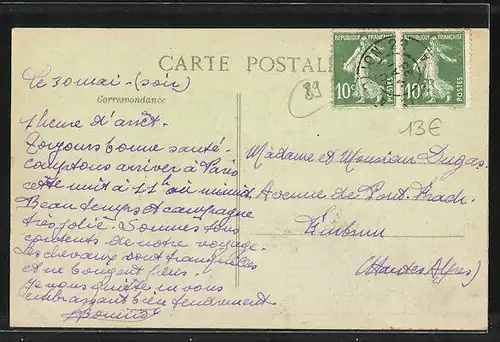 CARTE POSTALE
RÉPUBLIQUE FRANÇAISE
10c
POSTES
RÉPUBLIQUE FRANÇAISE
10c
POSTES
89
13€
Le 30 mai - (soir)
Correspondance
1 heure d'arrêt.
Toujours bonne santé -
comptons arriver à Paris
cette nuit à 11h ou minuit
Beau temps et campagne
très jolie. Sommes tous
contents de notre voyage.
Les chevaux sont tranquilles
et ne bougent plus.
Je vous quitte en vous
embrassant bien tendrement
Madame et Monsieur Dugas
Avenue de Pont
Embrun
(Hautes Alpes)